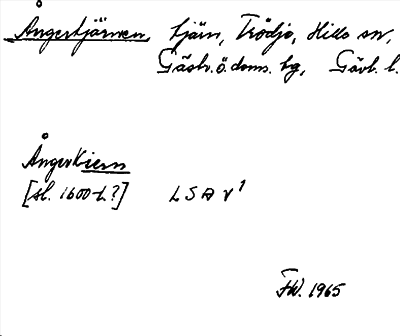 Ångertjärnen tjärn, Trödje, Hille sn,
Gästr. ö. doms. hg, Gävl. l.
Ångerkiern
[sl. 1600-t.?] L S A V¹
FW. 1965